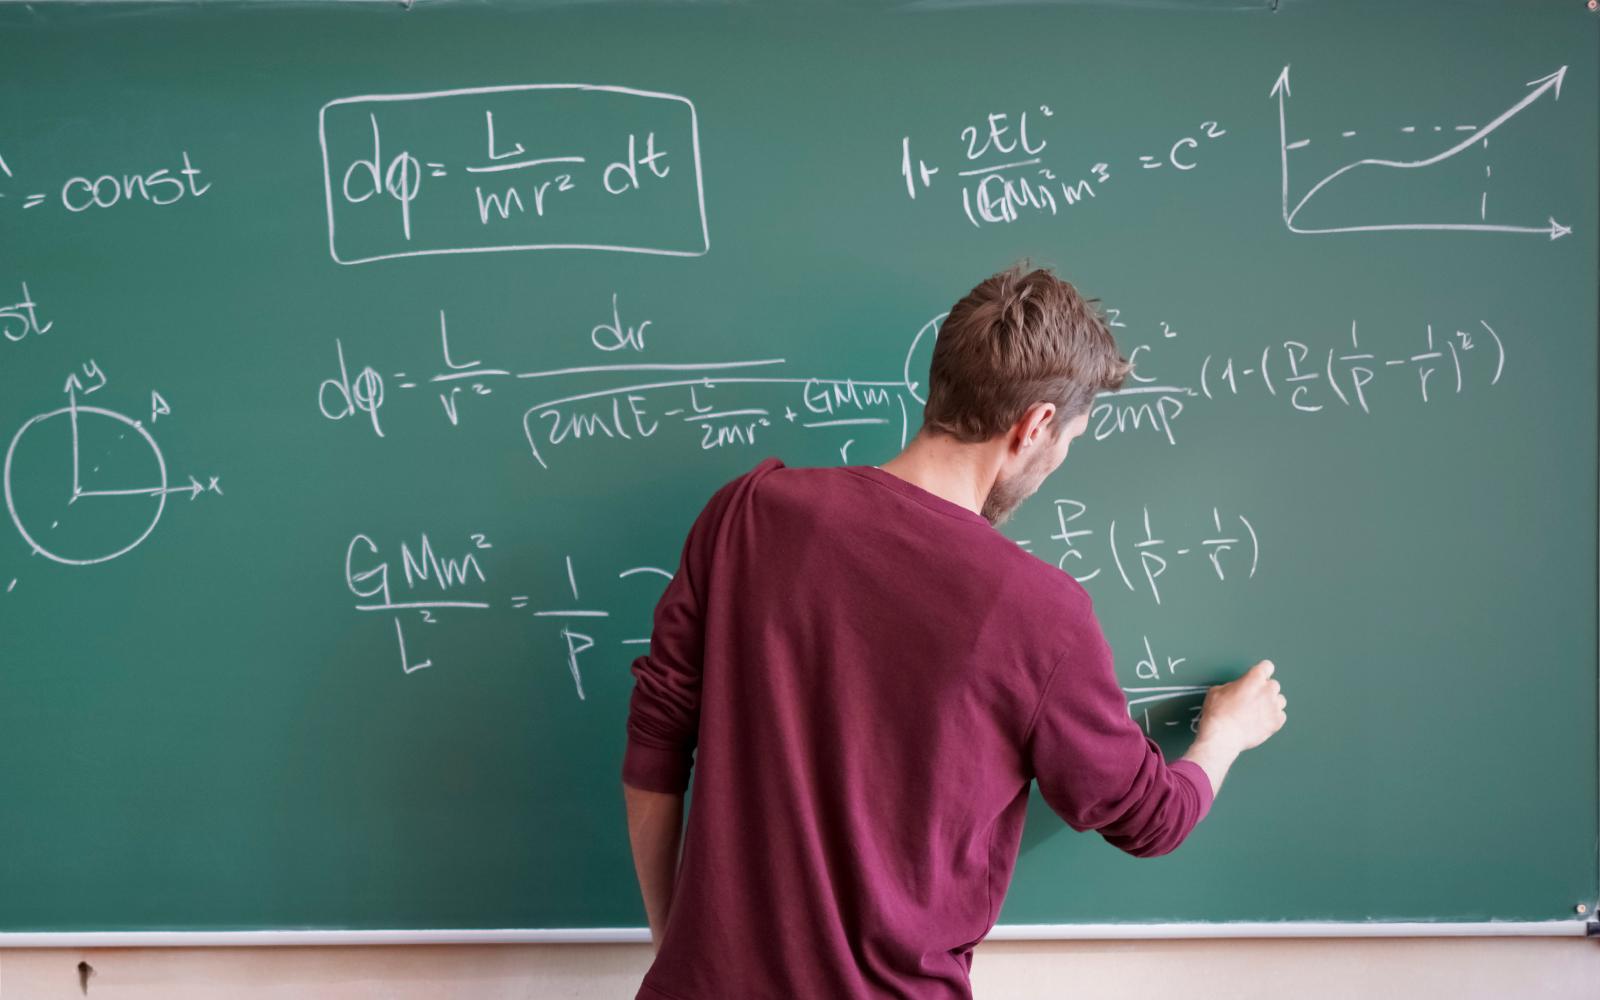 = const
dφ = L/mr² dt
1+ 2EL²/(GM)²m³ = C²
st
dφ = L/r² dr/√2m(E - L²/2mr² + GMm/r)
C²/2mp² (1-(P/C(1/P - 1/r)²)
y
A
x
GMm²/L² = 1/P
= P/C (1/P - 1/r)
dr/√1-